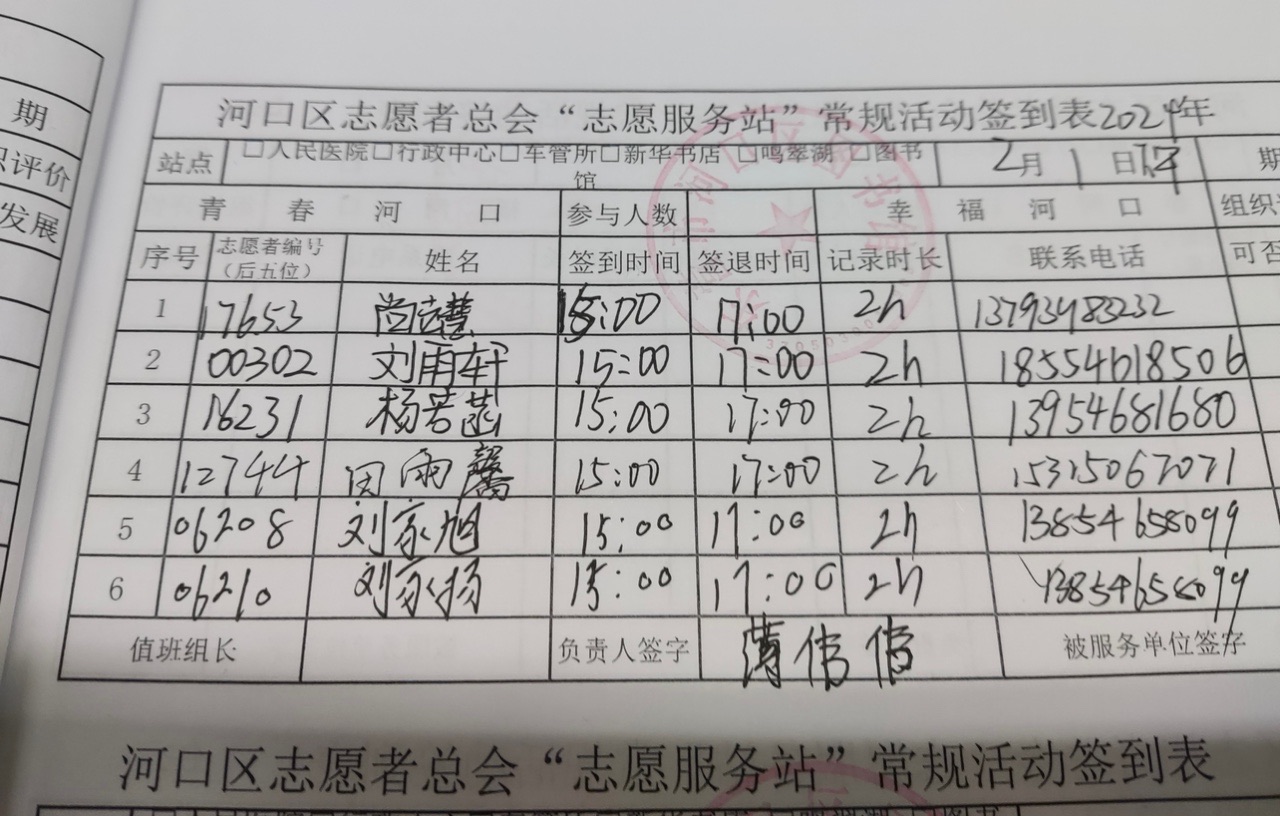 期
识评价
发展
河口区志愿者总会“志愿服务站”常规活动签到表2024年
站点 □人民医院□行政中心□车管所□新华书店 □鸣翠湖 □图书馆 2月1日下午 期
青春河口 参与人数 幸福河口 组织
序号 志愿者编号（后五位） 姓名 签到时间 签退时间 记录时长 联系电话 可否
1 17653 尚志慧 15:00 17:00 2h 13793483232
2 00302 刘雨轩 15:00 17:00 2h 18554618506
3 16231 杨若菡 15:00 17:00 2h 13954681680
4 12744 田雨馨 15:00 17:00 2h 15315067071
5 06208 刘家旭 15:00 17:00 2h 13854658099
6 06210 刘家扬 15:00 17:00 2h 13854658099
值班组长 负责人签字 薄倩倩 被服务单位签字
河口区志愿者总会“志愿服务站”常规活动签到表